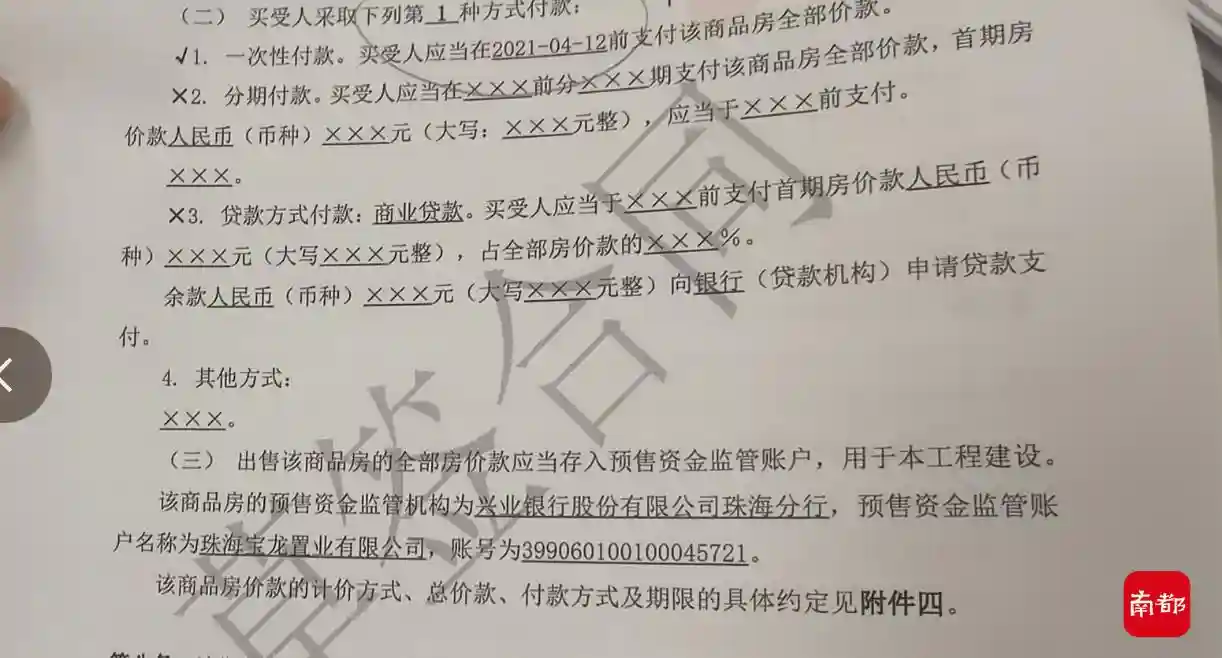 （二） 买受人采取下列第 1 种方式付款：
√1. 一次性付款。买受人应当在2021-04-12前支付该商品房全部价款。
×2. 分期付款。买受人应当在×××前分×××期支付该商品房全部价款，首期房
价款人民币（币种）×××元（大写：×××元整），应当于×××前支付。
×××。
×3. 贷款方式付款：商业贷款。买受人应当于×××前支付首期房价款人民币（币
种）×××元（大写×××元整），占全部房价款的×××%。
余款人民币（币种）×××元（大写×××元整）向银行（贷款机构）申请贷款支
付。
4. 其他方式：
×××。
（三） 出售该商品房的全部房价款应当存入预售资金监管账户，用于本工程建设。
该商品房的预售资金监管机构为兴业银行股份有限公司珠海分行，预售资金监管账
户名称为珠海宝龙置业有限公司，账号为399060100100045721。
该商品房价款的计价方式、总价款、付款方式及期限的具体约定见附件四。
草签合同
南都